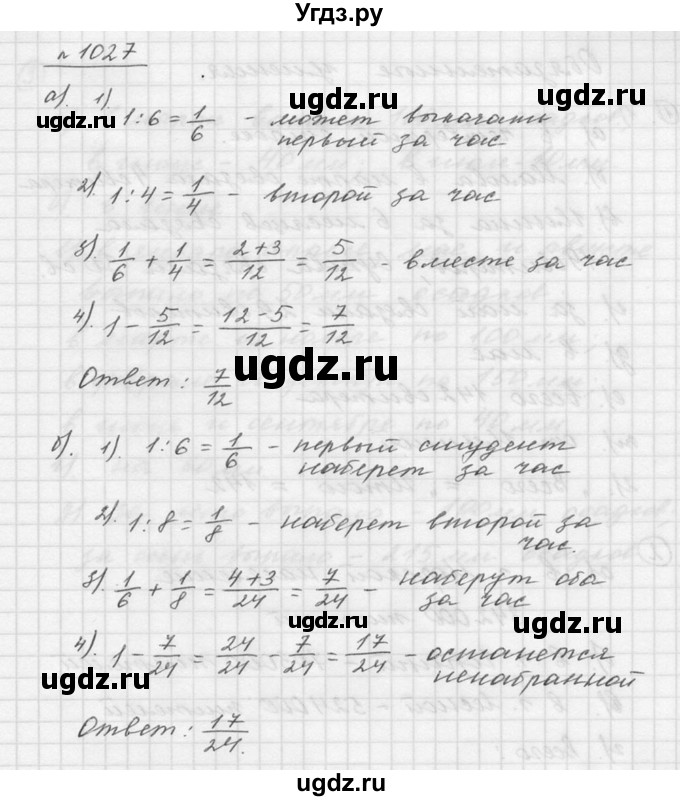 Угдз.ру
№ 1027
а). 1) 1 : 6 = 1/6 - может выкачать
первый за час
2). 1 : 4 = 1/4 - второй за час
3). 1/6 + 1/4 = 2+3/12 = 5/12 - вместе за час
4). 1 - 5/12 = 12-5/12 = 7/12
Ответ: 7/12
б). 1). 1 : 6 = 1/6 - первый студент
наберет за час
2). 1 : 8 = 1/8 - наберет второй за
час.
3). 1/6 + 1/8 = 4+3/24 = 7/24 - наберут оба
за час
4). 1 - 7/24 = 24/24 - 7/24 = 17/24 - останется
ненабранной
Ответ: 17/24.
ugdz.ru
ugdz.ru
ugdz.ru
ugdz.ru
ugdz.ru
ugdz.ru
ugdz.ru
ugdz.ru
ugdz.ru
ugdz.ru
ugdz.ru
ugdz.ru